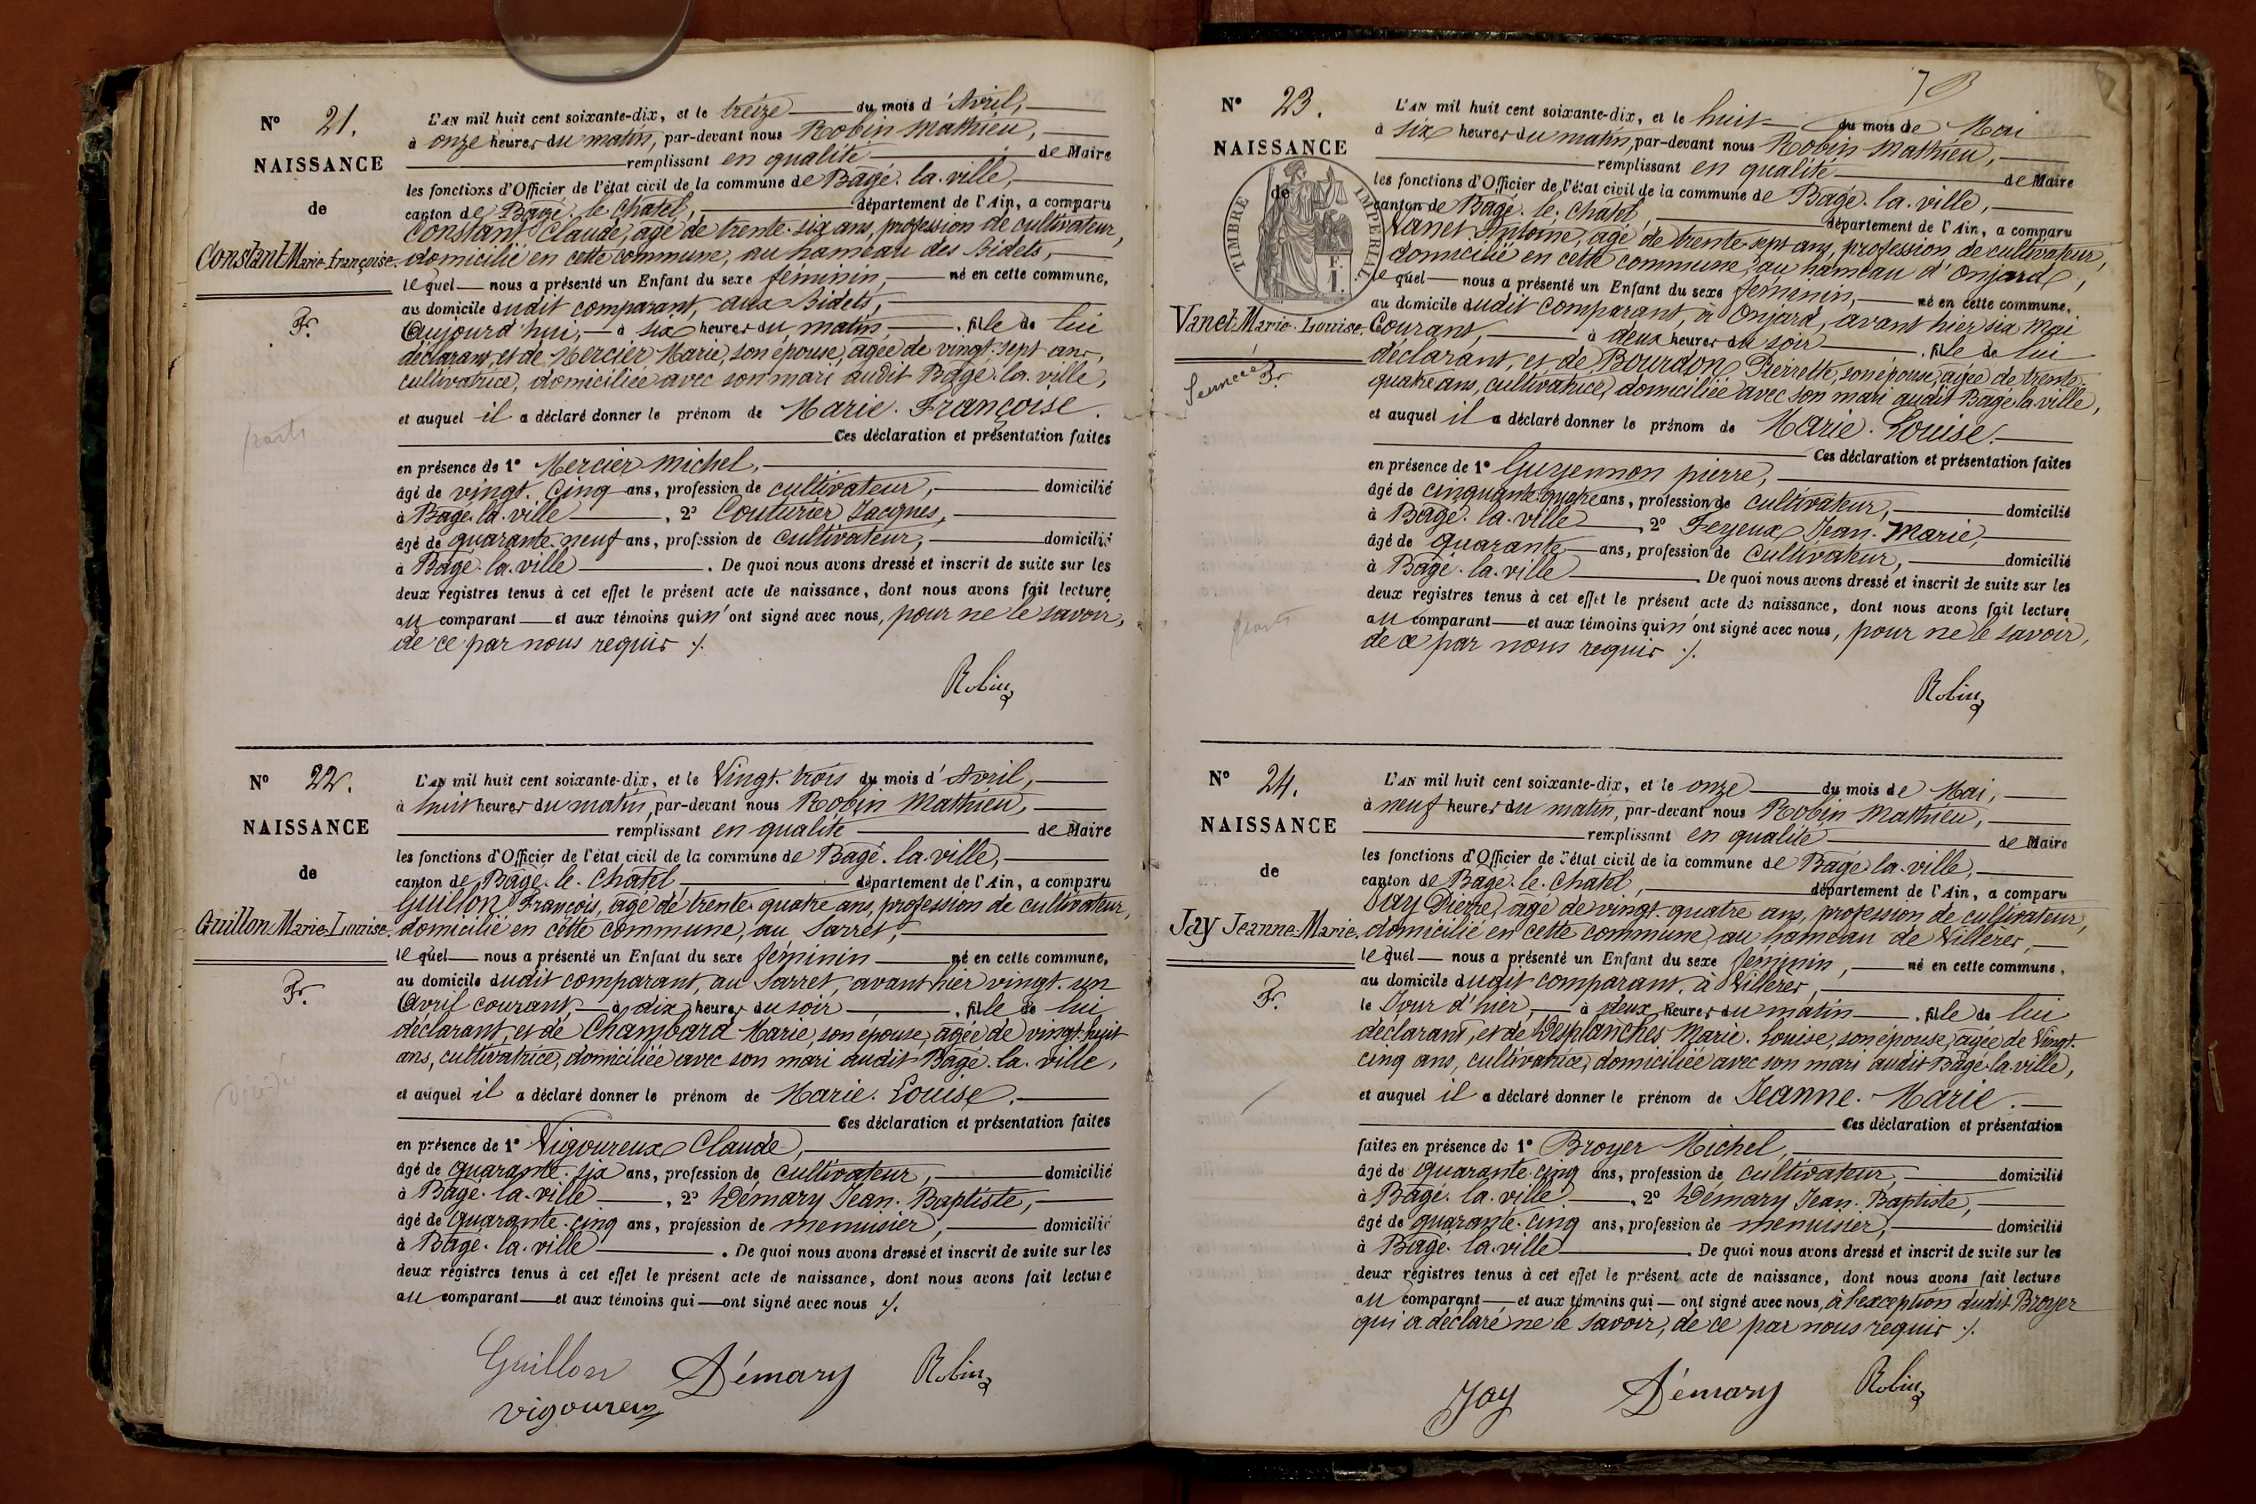 N° 21.
NAISSANCE
de
Constant Marie-Françoise.
Fr.
L'AN mil huit cent soixante-dix, et le treize du mois d'Avril,
à onze heures du matin, par-devant nous Robin Mathieu,
remplissant en qualité de Maire
les fonctions d'Officier de l'état civil de la commune de Bagé-la-ville,
canton de Bagé-le-Chatel, département de l'Ain, a comparu
Constant Claude, agé de trente-six ans, profession de cultivateur,
domicilié en cette commune, au hameau des Bidets,
lequel nous a présenté un Enfant du sexe féminin, né en cette commune,
au domicile dudit comparant, aux Bidets,
Aujourd'hui, à six heures du matin, fille de lui
déclarant, et de Mercier Marie, son épouse, agée de vingt-sept ans,
cultivatrice, domiciliée avec son mari audit Bagé-la-ville,
et auquel il a déclaré donner le prénom de Marie-Françoise.
Ces déclaration et présentation faites
en présence de 1° Mercier Michel,
âgé de vingt-cinq ans, profession de cultivateur, domicilié
à Bagé-la-ville, 2° Couturier Jacques,
âgé de quarante-neuf ans, profession de cultivateur, domicilié
à Bagé-la-ville. De quoi nous avons dressé et inscrit de suite sur les
deux registres tenus à cet effet le présent acte de naissance, dont nous avons fait lecture
au comparant et aux témoins qui n'ont signé avec nous, pour ne le savoir,
de ce par nous requis ./.
Robin
N° 22.
NAISSANCE
de
Guillon Marie-Louise.
Fr.
L'AN mil huit cent soixante-dix, et le Vingt-trois du mois d'Avril,
à huit heures du matin, par-devant nous Robin Mathieu,
remplissant en qualité de Maire
les fonctions d'Officier de l'état civil de la commune de Bagé-la-ville,
canton de Bagé-le-Chatel, département de l'Ain, a comparu
Guillon François, agé de trente-quatre ans, profession de cultivateur,
domicilié en cette commune, au Sarret,
lequel nous a présenté un Enfant du sexe féminin né en cette commune,
au domicile dudit comparant, au Sarret, avant hier vingt-un
Avril courant, à dix heures du soir, fille de lui
déclarant, et de Chambard Marie, son épouse, agée de vingt-huit
ans, cultivatrice, domiciliée avec son mari audit Bagé-la-ville,
et auquel il a déclaré donner le prénom de Marie-Louise.
Ces déclaration et présentation faites
en présence de 1° Vigoureux Claude,
âgé de quarante-six ans, profession de cultivateur, domicilié
à Bagé-la-ville, 2° Démary Jean-Baptiste,
âgé de quarante-cinq ans, profession de menuisier, domicilié
à Bagé-la-ville. De quoi nous avons dressé et inscrit de suite sur les
deux registres tenus à cet effet le présent acte de naissance, dont nous avons fait lecture
au comparant et aux témoins qui ont signé avec nous ./.
Guillon Démary Robin
vigoureux
N° 23.
NAISSANCE
de
TIMBRE IMPERIAL
F.
1.
Vanet Marie-Louise.
Fr.
L'AN mil huit cent soixante-dix, et le huit du mois de Mai
à six heures du matin, par-devant nous Robin Mathieu,
remplissant en qualité de Maire
les fonctions d'Officier de l'état civil de la commune de Bagé-la-ville,
canton de Bagé-le-Chatel, département de l'Ain, a comparu
Vanet Antoine, agé de trente-sept ans, profession de cultivateur,
domicilié en cette commune, au hameau d'Onjard,
lequel nous a présenté un Enfant du sexe féminin, né en cette commune,
au domicile dudit comparant, à Onjard, avant hier six Mai
Courant, à deux heures du soir, fille de lui
déclarant, et de Bourdon Pierrette, son épouse, agée de trente-
quatre ans, cultivatrice, domiciliée avec son mari audit Bagé-la-ville,
et auquel il a déclaré donner le prénom de Marie-Louise.
Ces déclaration et présentation faites
en présence de 1° Guyennon pierre,
âgé de cinquante-quatre ans, profession de cultivateur, domicilié
à Bagé-la-ville, 2° Feyeux Jean-Marie,
âgé de quarante ans, profession de cultivateur, domicilié
à Bagé-la-ville. De quoi nous avons dressé et inscrit de suite sur les
deux registres tenus à cet effet le présent acte de naissance, dont nous avons fait lecture
au comparant et aux témoins qui n'ont signé avec nous, pour ne le savoir,
de ce par nous requis ./.
Robin
N° 24.
NAISSANCE
de
Jay Jeanne-Marie.
Fr.
L'AN mil huit cent soixante-dix, et le onze du mois de Mai,
à neuf heures du matin, par-devant nous Robin Mathieu,
remplissant en qualité de Maire
les fonctions d'Officier de l'état civil de la commune de Bagé-la-ville,
canton de Bagé-le-Chatel, département de l'Ain, a comparu
Jay Pierre, agé de vingt-quatre ans, profession de cultivateur,
domicilié en cette commune, au hameau de Villères,
lequel nous a présenté un Enfant du sexe féminin, né en cette commune,
au domicile dudit comparant, à Villères,
le Jour d'hier, à deux heures du matin, fille de lui
déclarant, et de Desplanches Marie-Louise, son épouse, agée de Vingt-
cinq ans, cultivatrice, domiciliée avec son mari audit Bagé-la-ville,
et auquel il a déclaré donner le prénom de Jeanne-Marie.
Ces déclaration et présentation
faites en présence de 1° Broyer Michel,
âgé de quarante-cinq ans, profession de cultivateur, domicilié
à Bagé-la-ville, 2° Démary Jean-Baptiste,
âgé de quarante-cinq ans, profession de menuisier, domicilié
à Bagé-la-ville. De quoi nous avons dressé et inscrit de suite sur les
deux registres tenus à cet effet le présent acte de naissance, dont nous avons fait lecture
au comparant et aux témoins qui ont signé avec nous, à l'exception dudit Broyer
qui a déclaré ne le savoir, de ce par nous requis ./.
Jay Démary Robin